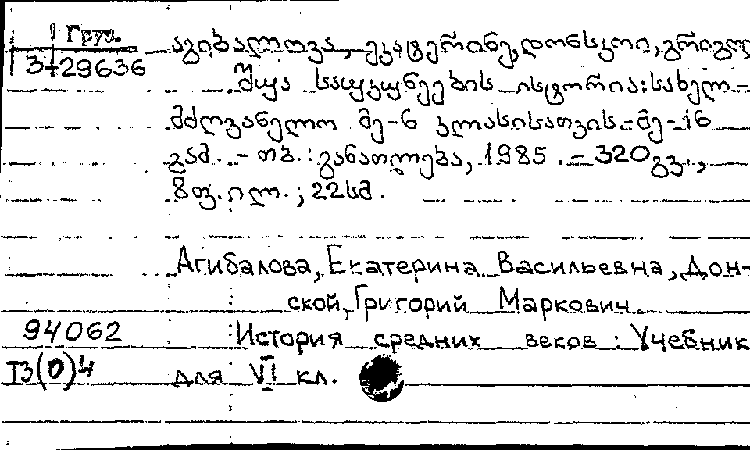 Груз.
3-29636
აგიბალოვა, ეკატერინე, დონსკოი, გრიგოლ
შუა საუკუნეების ისტორია: სახელ-
მძღვანელო მე-6 კლასისათვის.-მე-16
გამ. - თბ.: განათლება, 1985. - 320 გვ.,
8 ფ. ილ.; 22 სმ.
Агибалова, Екатерина Васильевна, Дон-
ской, Григорий Маркович.
94062 История средних веков: Учебник
для VI кл.